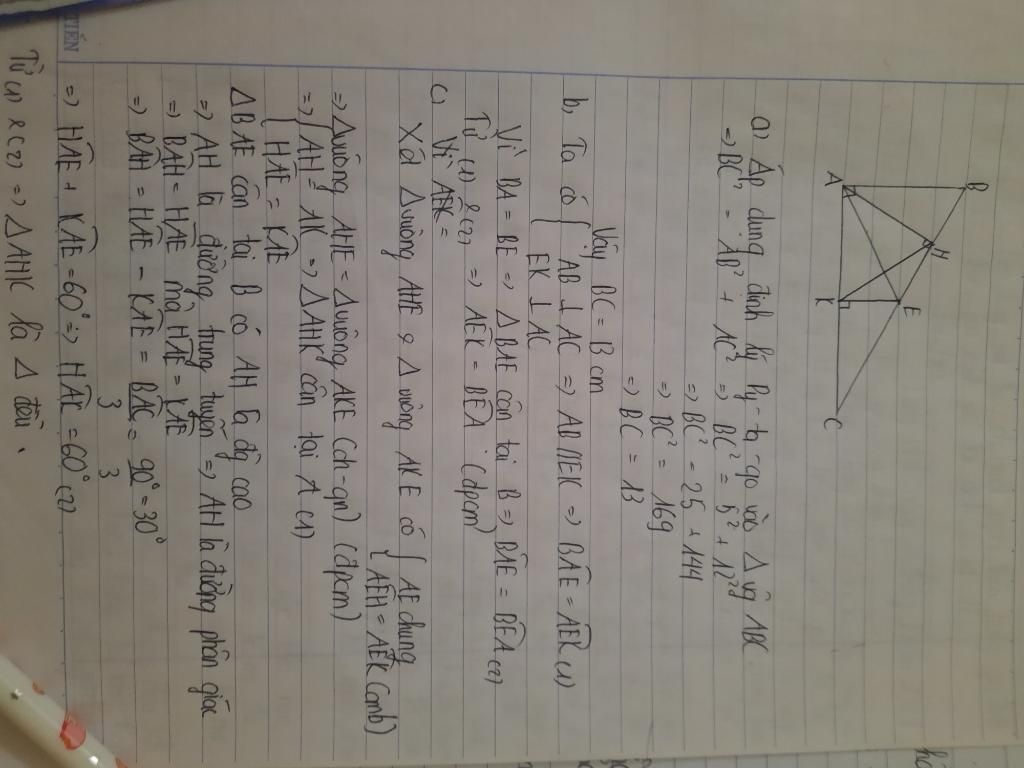 TIẾN
B
H
E
A
K
C
a) Áp dụng định lý Py-ta-go vào Δ vg ABC
=> BC² = AB² + AC² => BC² = 5² + 12²
=> BC² = 25 + 144
=> BC² = 169
=> BC = 13
Vậy BC = 13 cm
b, Ta có { AB ⊥ AC => AB // EK => BÂE = AÊK (1)
EK ⊥ AC
Vì BA = BE => Δ BAE cân tại B => BÂE = BÊA (2)
Từ (1) & (2) => AÊK = BÊA (đpcm)
c) Vì AÊK =
Xét Δ vuông AHE & Δ vuông AKE có { AE chung
AÊH = AÊK (cmb)
=> Δ vuông AHE = Δ vuông AKE (ch-gn) (đpcm)
=> { AH = AK => Δ AHK cân tại A (1)
HÂE = KÂE
Δ BAE cân tại B có AH là đg cao
=> AH là đường trung tuyến => AH là đường phân giác
=> BÂH = HÂE mà HÂE = KÂE
=> BÂH = HÂE = KÂE = BÂC/3 = 90°/3 = 30°
=> HÂE + KÂE = 60° => HÂK = 60° (2)
Từ (1) & (2) => Δ AHK là Δ đều.